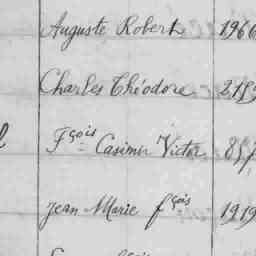 Auguste Robert 1966
Charles Théodore
Fçois Casimir Victor 857
Jean Marie fçois 1919